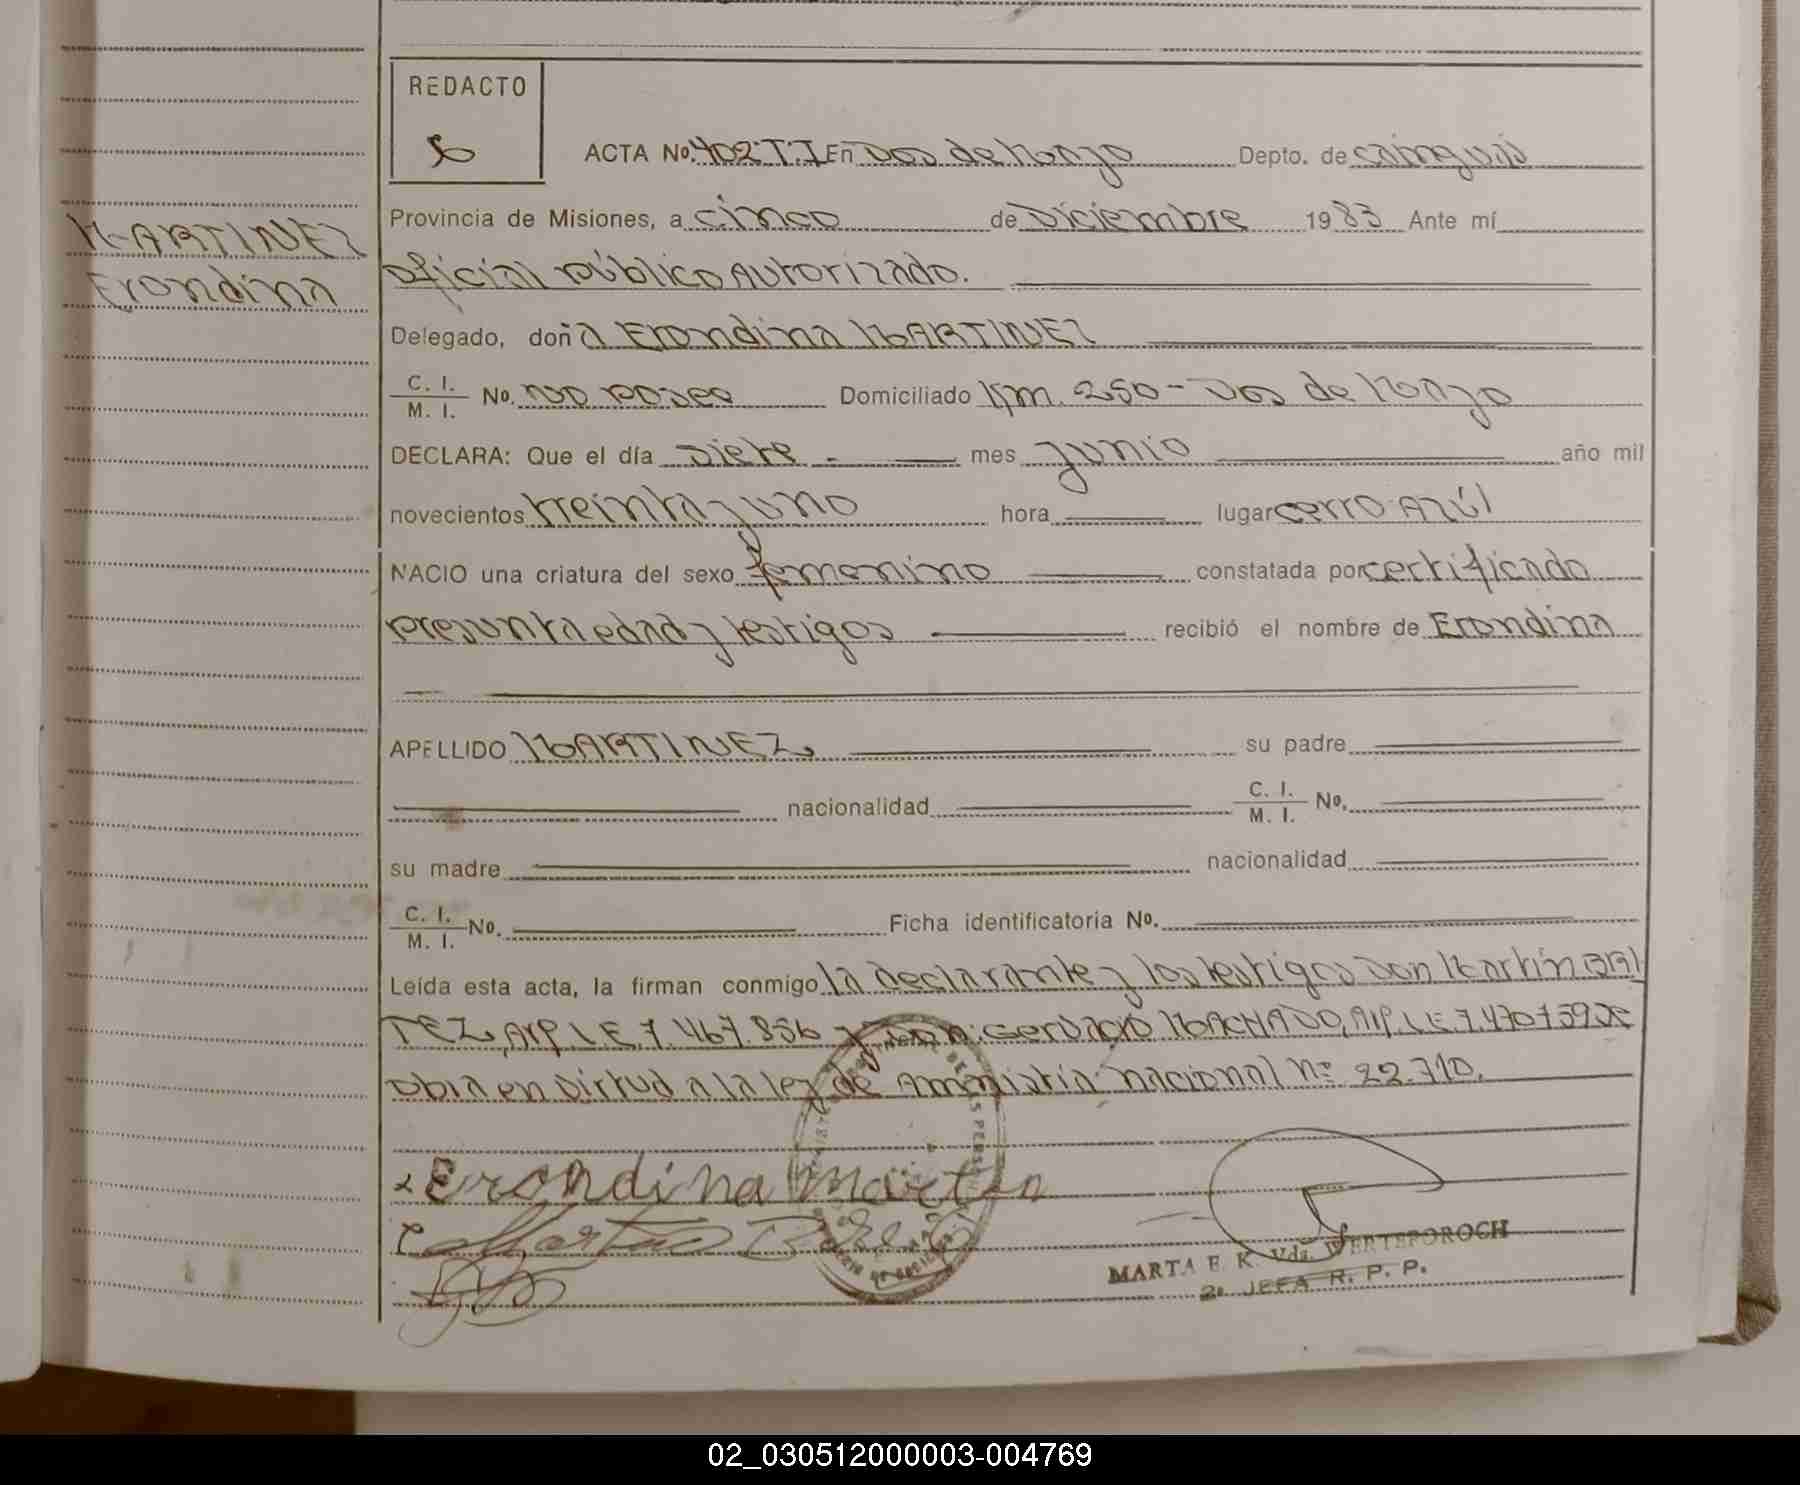 REDACTO
ACTA No. 402 T.I En Dos de Mayo Depto. de Cainguás
Provincia de Misiones, a cinco de Diciembre 1983 Ante mí
MARTINEZ
Erondina
oficial público Autorizado.
Delegado, doña Erondina MARTINEZ
C. I. / M. I. No. no posee Domiciliado Km. 250 - Dos de Mayo
DECLARA: Que el día siete mes junio año mil
novecientos treinta y uno hora lugar cerro Azúl
NACIO una criatura del sexo femenino constatada por certificado
presunta edad y testigos recibió el nombre de Erondina
APELLIDO MARTINEZ su padre
nacionalidad C. I. / M. I. No.
su madre nacionalidad
C. I. / M. I. No. Ficha identificatoria No.
Leída esta acta, la firman conmigo la declarante y los testigos Don Martín BRI
TEZ, Arg. L.E. 7.467.856 y Don: Gervacio MACHADO, Arg. L.E 7.470759 Se
obra en virtud a la ley de Amnistía nacional nº 22.710.
Erondina Martin
MARTA E. K. Vda. WERTEFOROCH
2a. JEFA R. P. P.
02_030512000003-004769